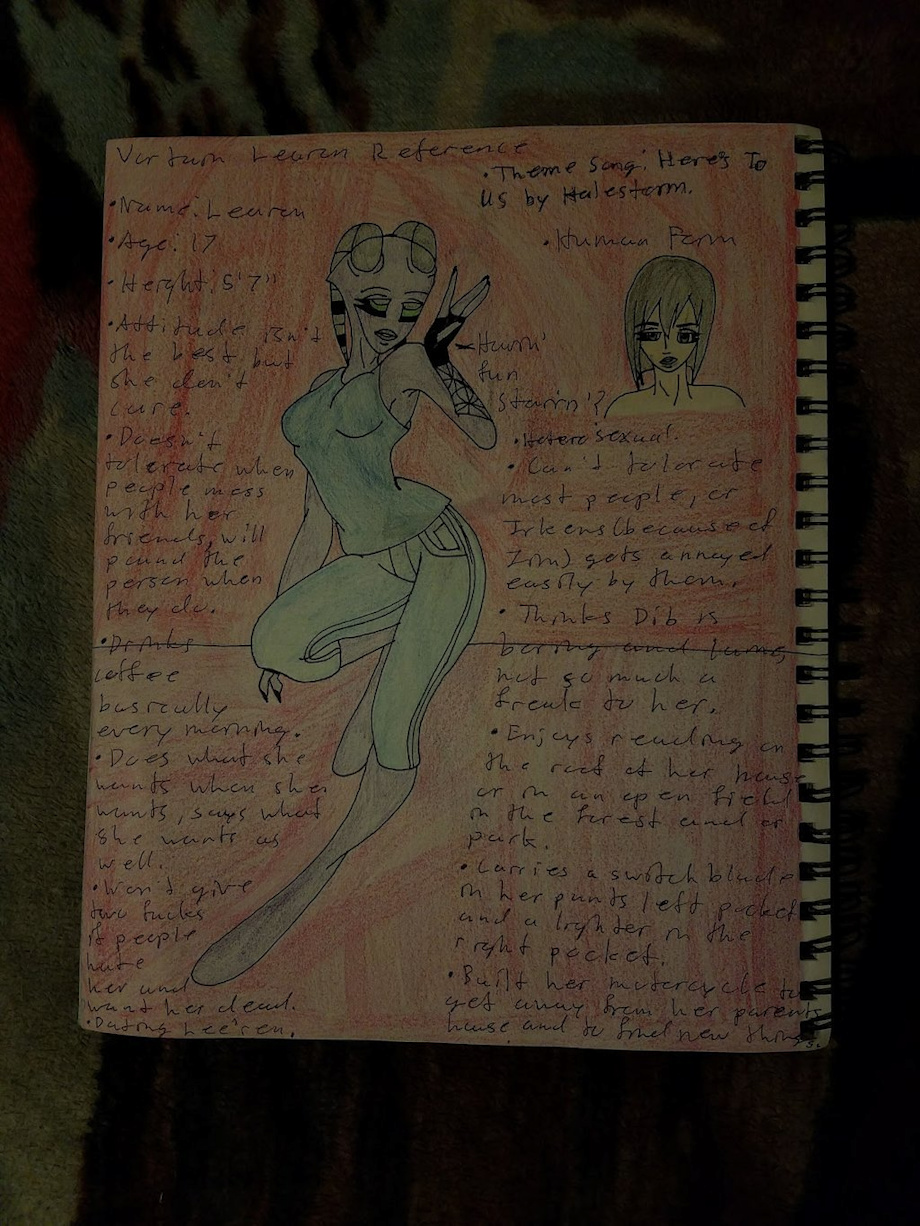 Vortian Learan Reference
• Theme Song: Here's To
Us by Halestorm.
• Name: Learan
• Age: 17
• Height: 5'7"
• Attitude isn't
the best but
she don't
care.
• Doesn't
tolerate when
people mess
with her
friends, will
pound the
person when
they do.
• Drinks
coffee
basically
every morning.
• Does what she
wants when she
wants, says what
she wants as
well.
• Won't give
two fucks
if people
hate
her and
want her dead.
• Dating Lee'ren.
• Human Form
Havin'
fun
Starin'?
• Heterosexual.
• Can't tolorate
most people, or
Irkens (because of
Zim) gets annoyed
easily by them.
• Thinks Dib is
boring and lame,
not so much a
freak to her.
• Enjoys reading on
the roof of her house
or in an open field
in the forest and or
park.
• Carries a switchblade
in her pants left pocket
and a lighter in the
right pocket.
• Built her motorcycle to
get away from her parents
house and to find new things.